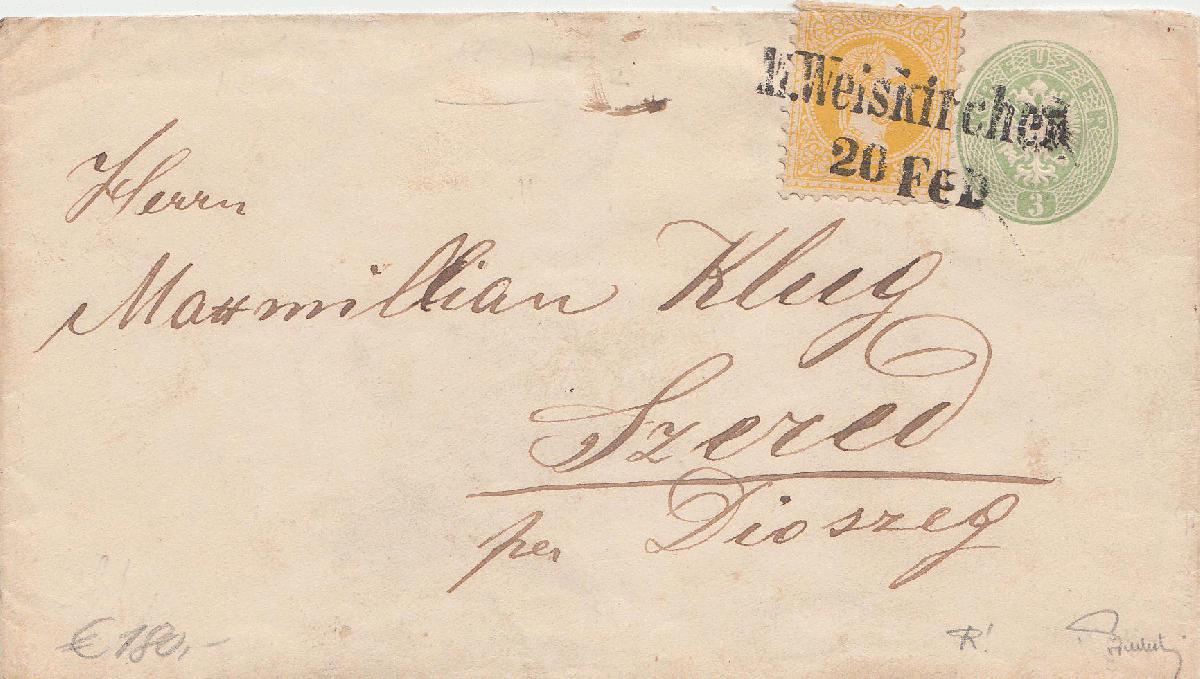 M.Weiskirchen
20 FEB
3
Herrn
Maxmillian Klug
Szered
per Dioszeg
€ 180,-
R!